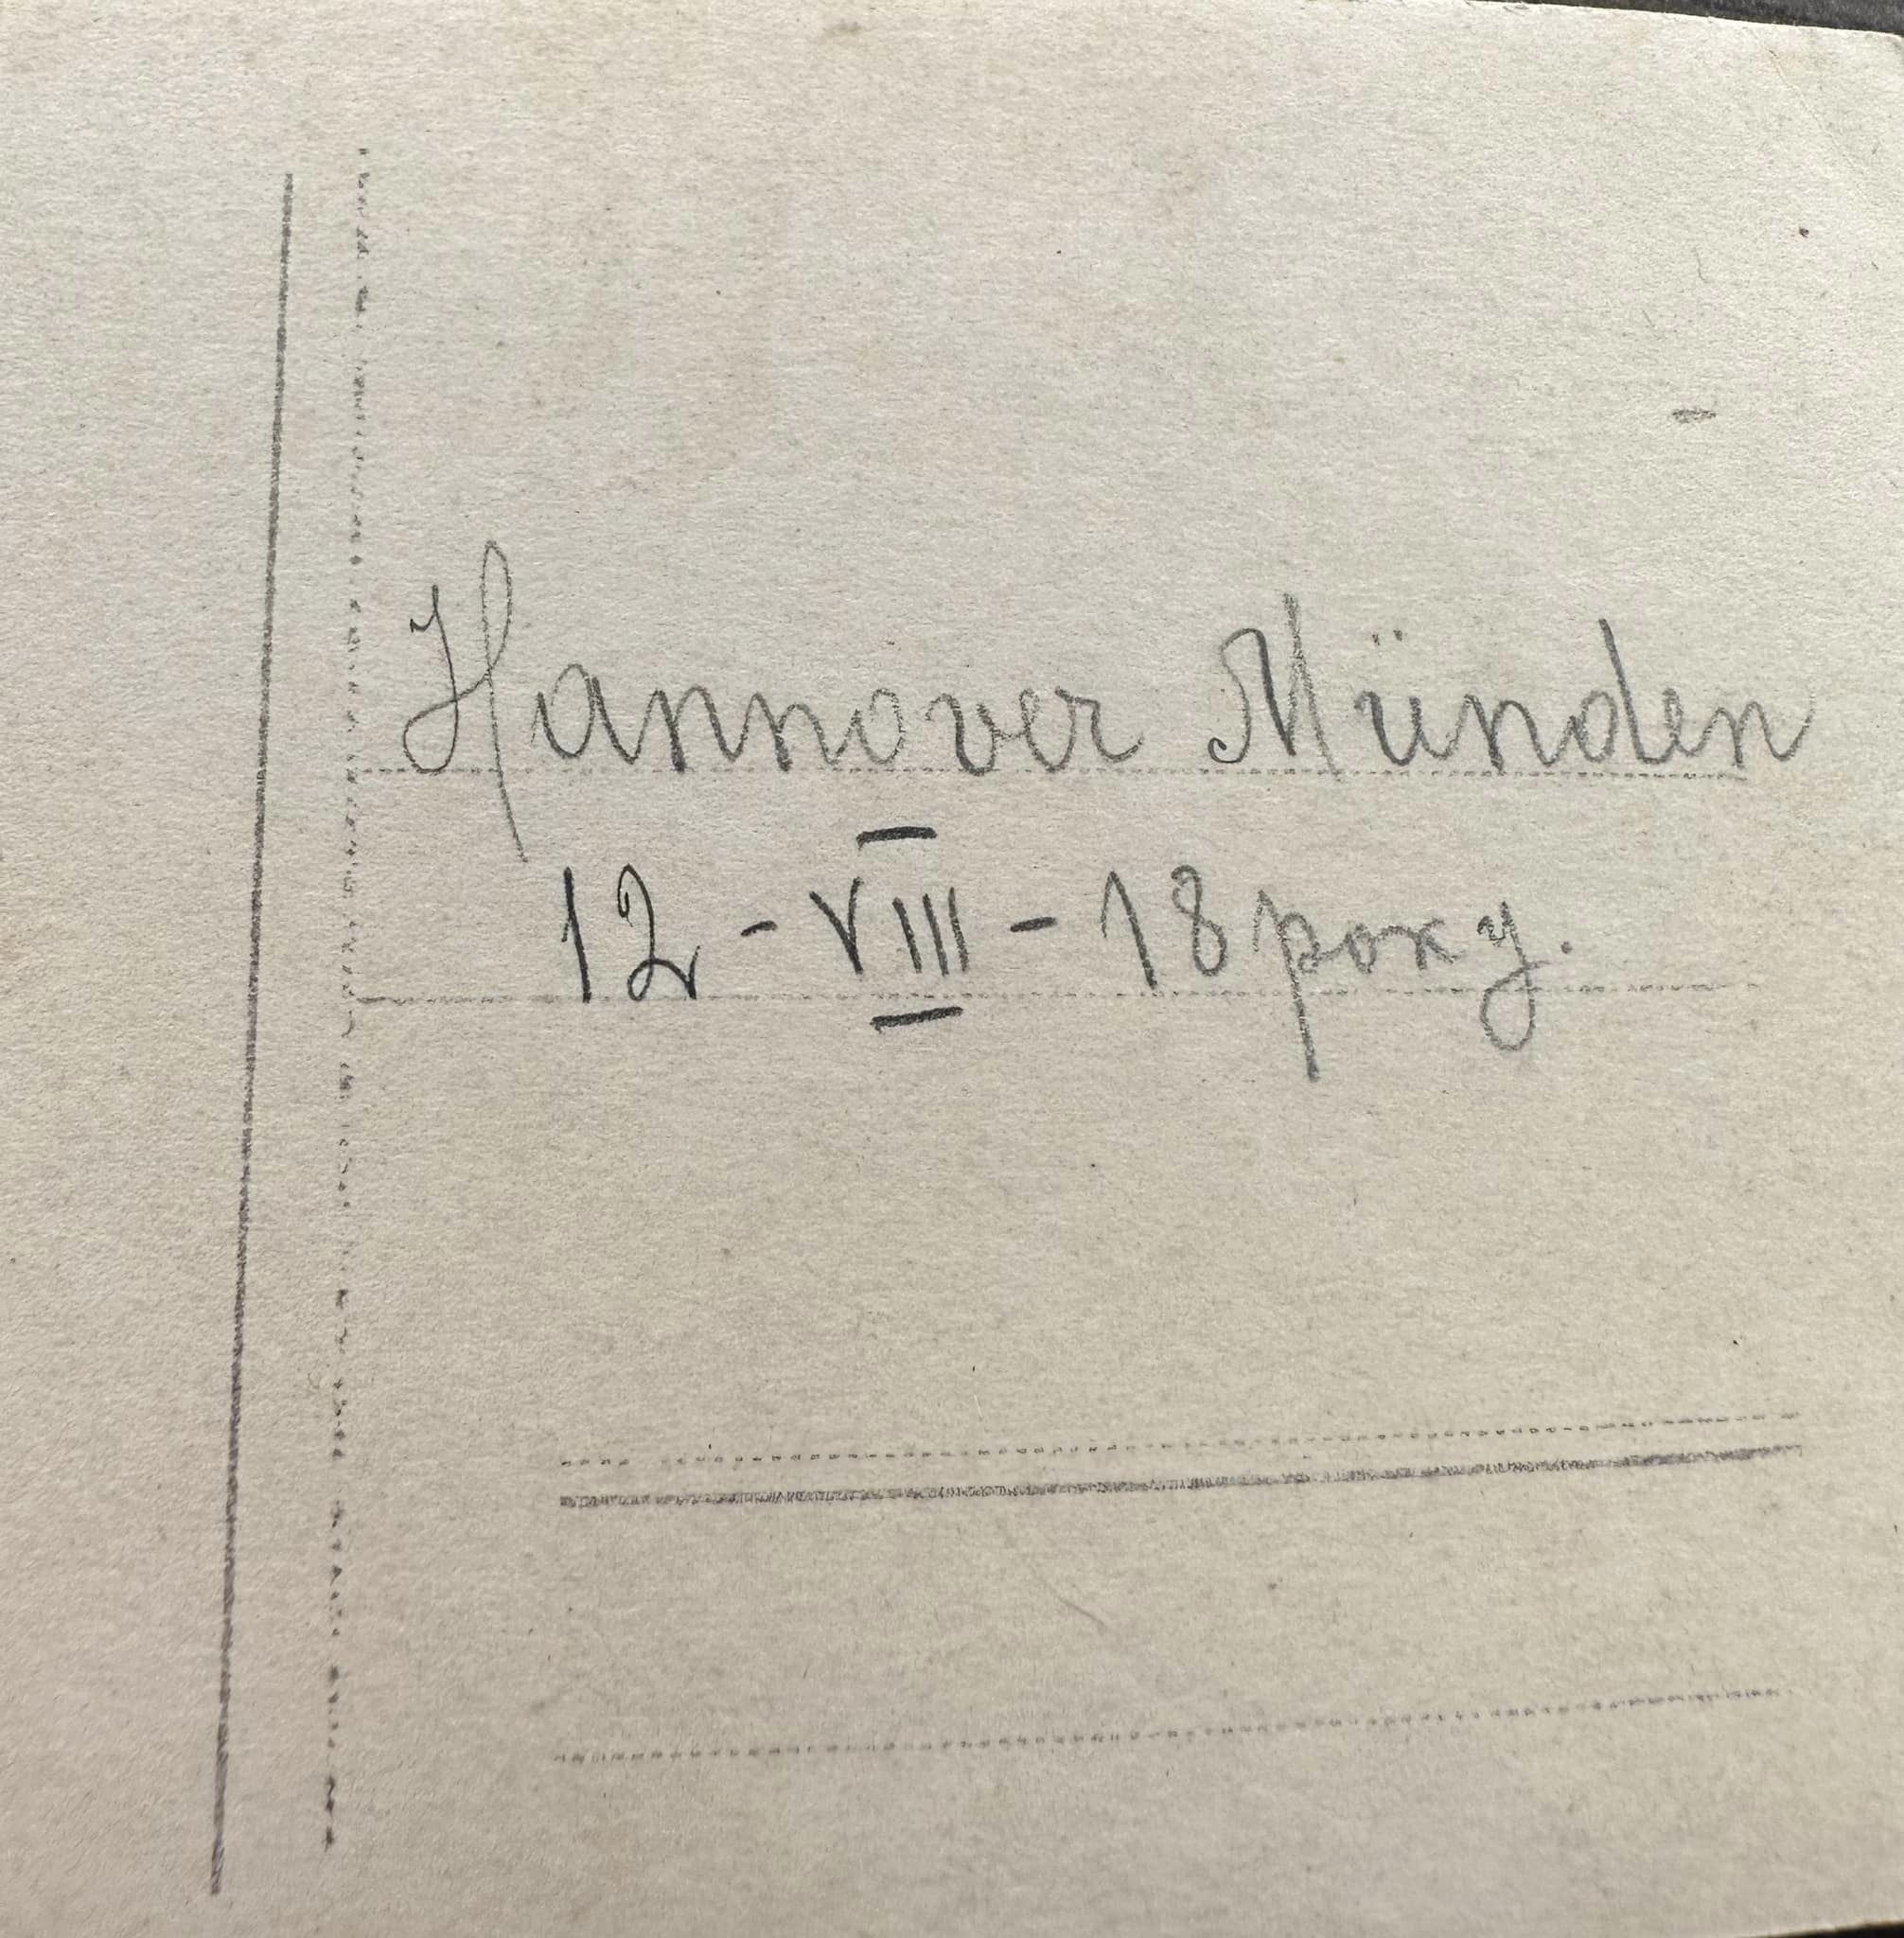 Hannover Münden
12 - VIII - 18 року.